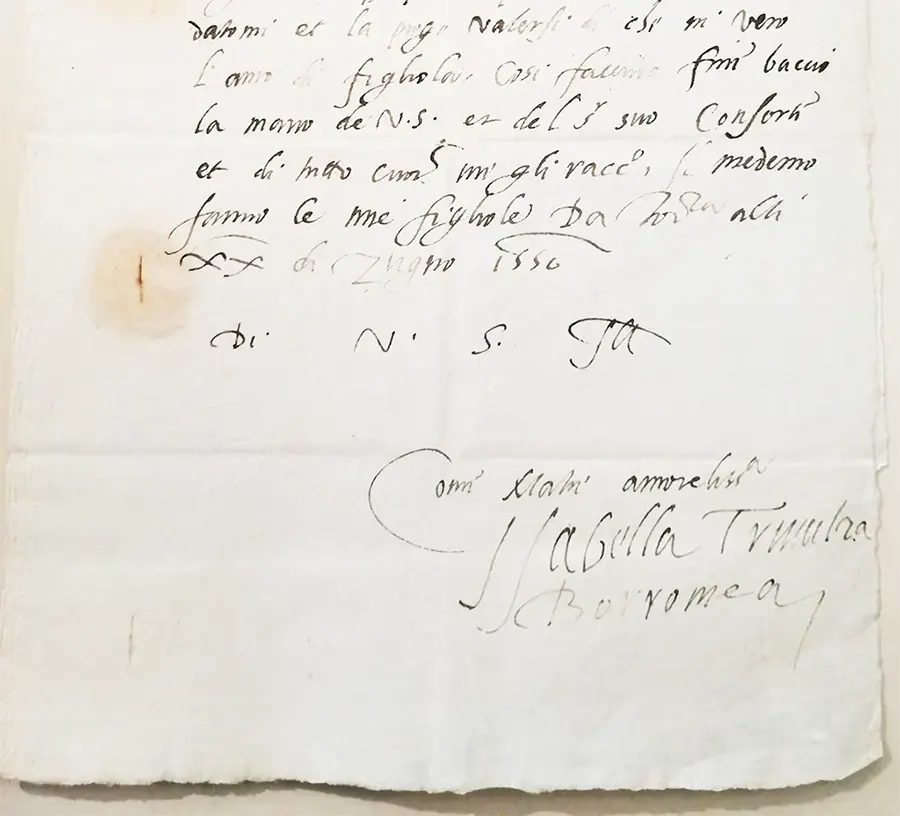 datomi et la prego Valersi di chi mi vero
l'amo di figliola, Cosi facendo finē baccio
la mano de V.S. et del sr suo Consorte
et di tutto cuore mi gli racco, il medemo
fanno le mie figliole Da alli
XX di Zugno 1550
Di V. S. Jll
Come amorelissa
Jsabella Trivultza
Borromea